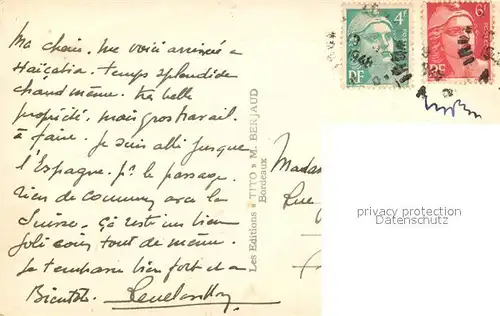 Ma chère, me voici arrivée à
Haïçabia. temps splendide
chaud même. très belle
propriété, mais gros travail
à faire. Je suis allé jusque
l'Espagne. le passage.
rien de commun avec la
Suisse. Ça reste un bien
joli coin tout de même.
Je t'embrasse bien fort et à
Bientôt.
Les Editions « TITO » M. BERJAUD
Bordeaux
4F
RF
6F
RF
1948
Madam
Rue
privacy protection
Datenschutz